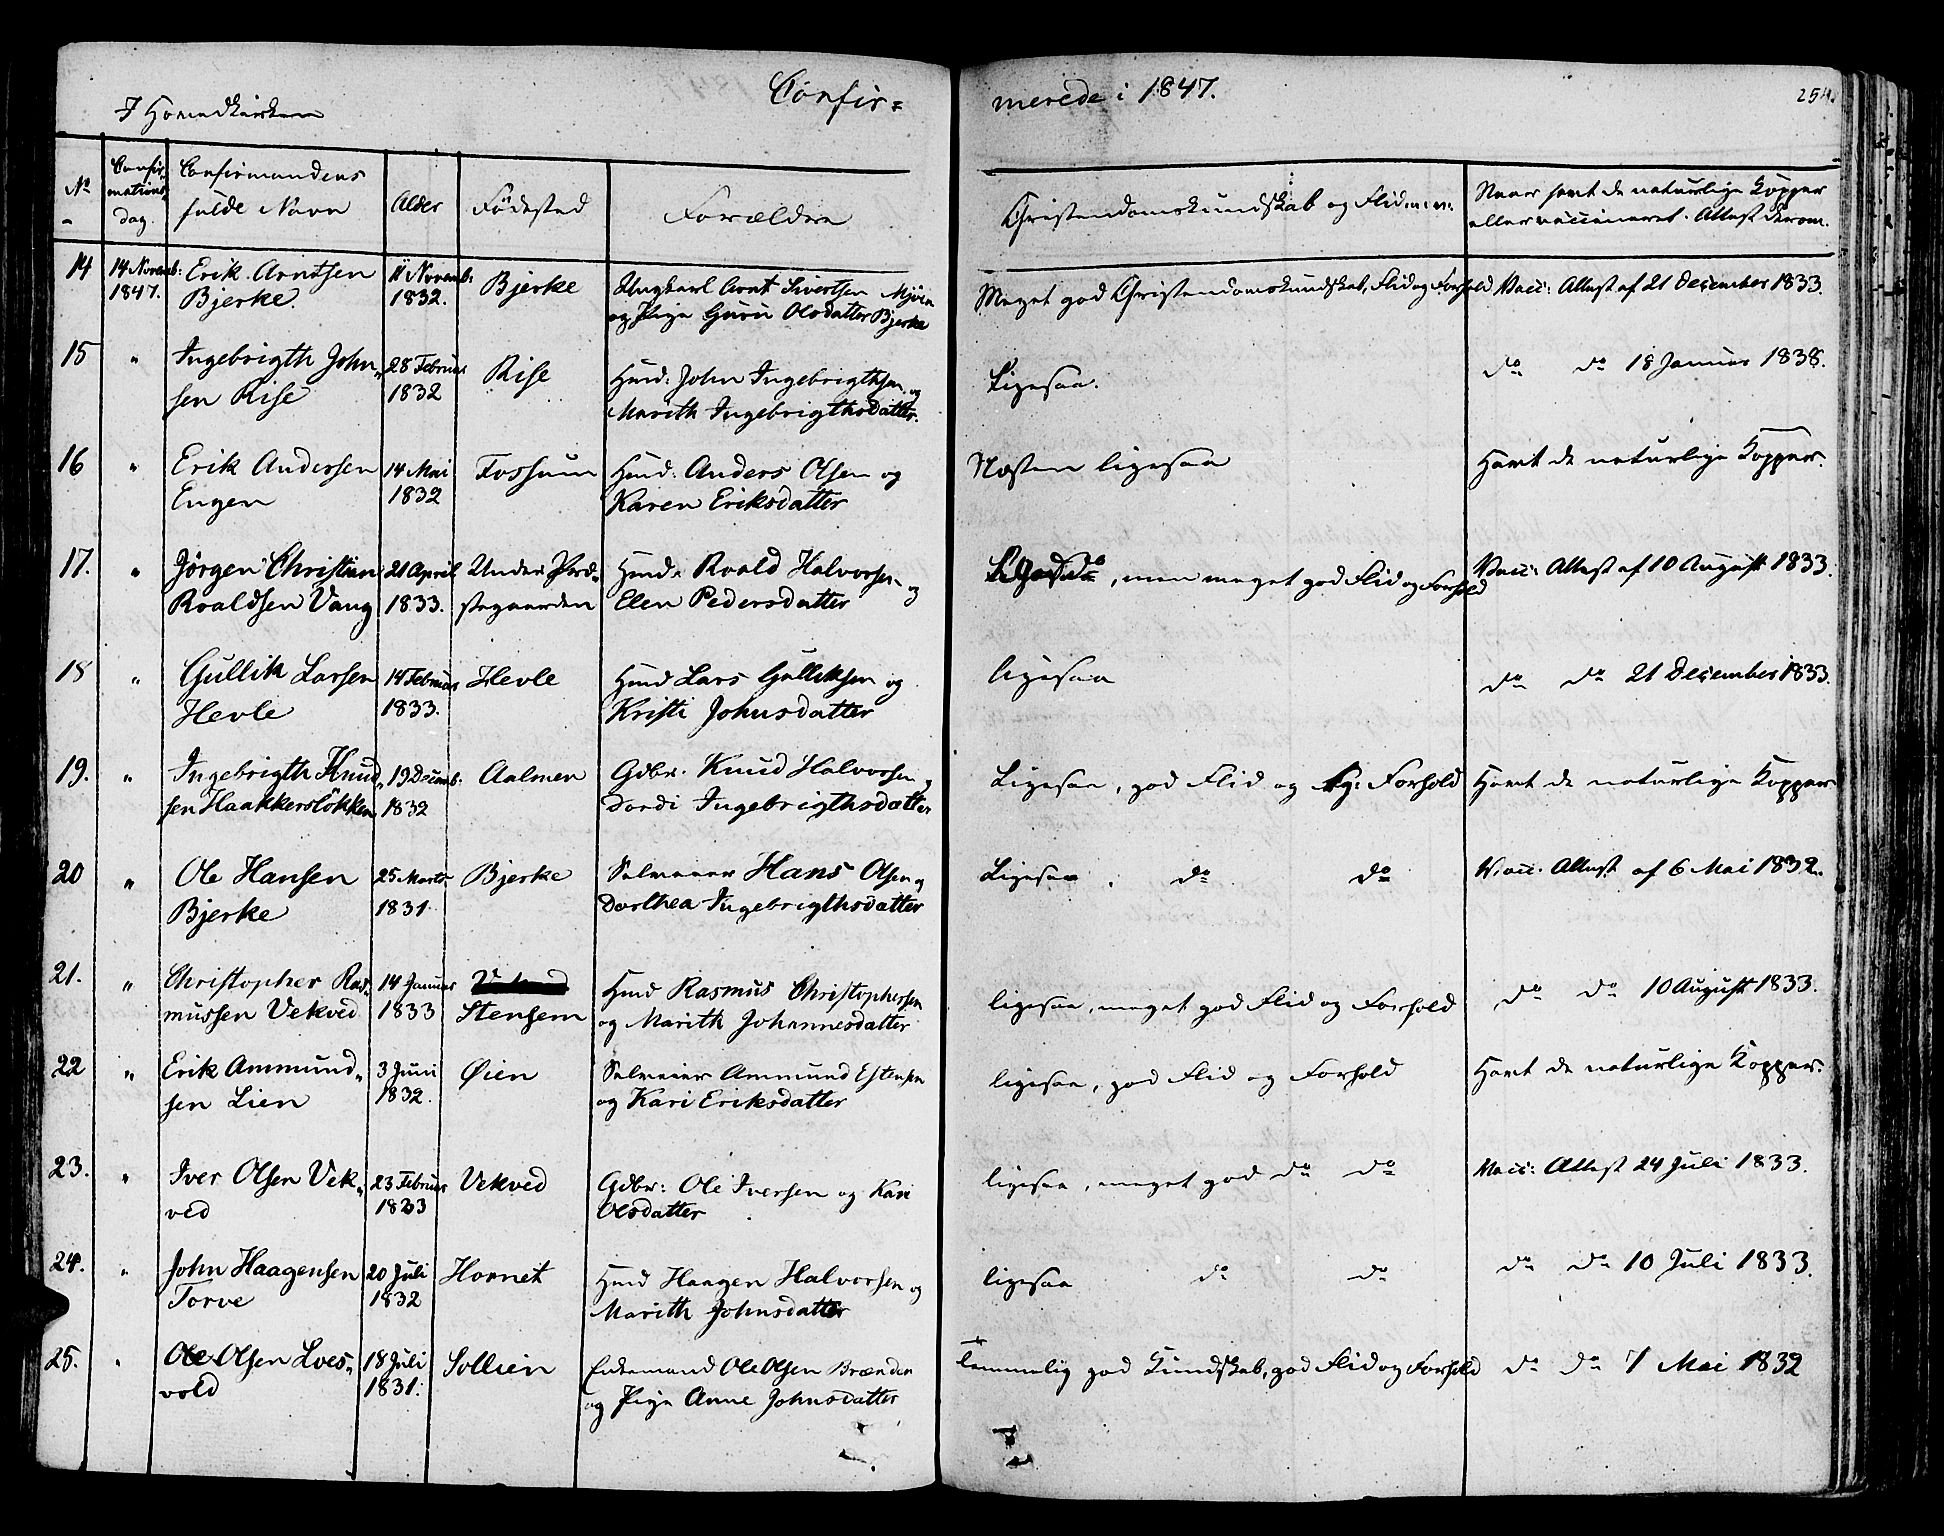 Confir=
merede i 1847.
254.
I Hovedkirken
No
Confir-
mations-
dag.
Confirmandens
fulde Navn
Alder
Födested
Forældre
Christendomskundskab og Flid m:m:
Naar havt de naturlige Kopper
eller vaccineret. Attest derom.
14
14 Novemb:
1847.
Erik Arntsen
Bjerke
11 Novemb:
1832.
Bjerke
Ungkarl Arnt Sivertsen Mjöen
og Pige Guru Olsdatter Bjerke
Meget god Christendomskundskab, Flid og Forhold
Vacc: Attest af 21 December 1833.
15
"
Ingebrigth John-
sen Rise
28 Februar
1832
Rise
Husd: John Ingebrigthsen og
Marith Ingebrigthsdatter.
Ligesaa.
do do 18 Januar 1838.
16
"
Erik Andersen
Engen
14 Mai
1832
Fossum
Husd: Anders Olsen og
Karen Eriksdatter
Næsten ligesaa
Havt de naturlige Kopper.
17.
"
Jörgen Christian
Roaldsen Vang
21 April
1833.
Under Præ-
stegaarden
Husd: Roald Halvorsen og
Elen Pedersdatter
, men meget god Flid og Forhold
Vacc: Attest af 10 August 1833.
18
"
Gullik Larsen
Hevle
14 Februar
1833.
Hevle
Husd Lars Gulliksen og
Kristi Johnsdatter
ligesaa
do do 21 December 1833.
19.
"
Ingebrigth Knud-
sen Haakkerslökken
19 Decemb:
1832
Aalmen
Gdbr. Knud Halvorsen og
Dordi Ingebrigthsdatter
Ligesaa, god Flid og Forhold
Havt de naturlige Kopper
20
"
Ole Hansen
Bjerke
25 Marts
1831.
Bjerke
Selveier Hans Olsen og
Dorthea Ingebrigthsdatter
Ligesaa. do do
Vacc. Attest af 6 Mai 1832.
21.
"
Christopher Ras-
mussen Vekved
14 Januar
1833
Stensem
Husd Rasmus Christophersen
og Marith Johannesdatter
ligesaa, meget god Flid og Forhold
do do 10 August 1833.
22
"
Erik Ammund-
sen Lien
3 Juni
1832.
Øien
Selveier Ammund Estensen
og Kari Eriksdatter
ligesaa, god Flid og Forhold
Havt de naturlige Kopper.
23.
"
Iver Olsen Vek-
ved
23 Februar
1833
Vekved
Gdbr: Ole Iversen og Kari
Olsdatter
ligesaa, meget god do do
Vacc: Attest 24 Juli 1833.
24.
"
John Haagensen
Torve
20 Juli
1832
Hornet
Husd Haagen Halvorsen og
Marith Johnsdatter
ligesaa do do
do do 10 Juli 1833.
25.
"
Ole Olsen Loes-
vold
18 Juli
1831.
Sollien
Enkemand Ole Olsen Brænden
og Pige Anne Johnsdatter
temmelig god Kundskab, god Flid og Forhold
do do 7 Mai 1832